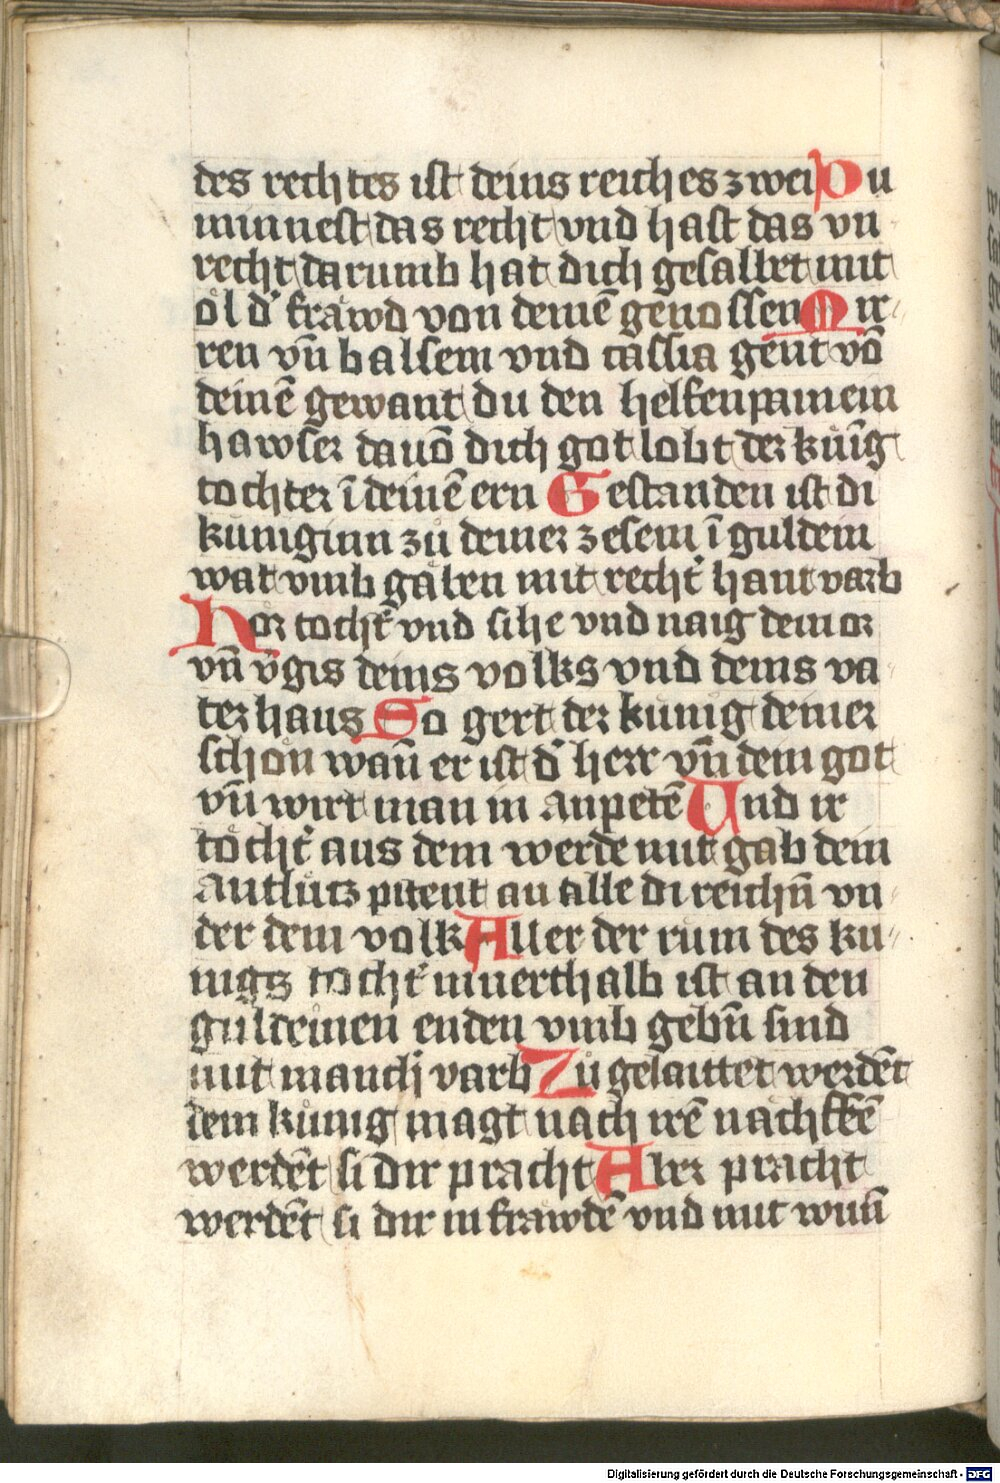 des rechtes ist deins reiches zwei Du
minnest das recht vnd hast das vn
recht darumb hat dich gesalbet mit
öl d' fräwd von deinē genossen Mir-
ren vn̄ balsem vnd cassia gent vō
deinē gewant du den helfenpainein
hawser dauō dich got lobt der künig
tochter ī deinē ern Gestanden ist di
kuniginn zů deiner zesem ī guldem
wat vmb gäben mit recht' hant varb
Hor tocht' vnd sihe vnd naig dein or
vn̄ v'gis deins volks vnd deins va
ter haus So gert der kunig deiner
schön wan̄ er ist d' herr vn̄ dein got
vn̄ wirt man in anpetē Vnd ir
töcht' aus dem werde mit gab dein
antlütz pitent an alle di reichn̄ vn
der dem volk Aller der rům des kü-
nigs tocht' innerthalb ist an den
guldeinen enden vmb gebn̄ sind
mit manch' varb Zů gelaittet werdēt
dem künig magt nach irē nachstē
werdēt si dir pracht Aber pracht
werdēt si dir in fräwdē vnd mit wun̄
Digitalisierung gefördert durch die Deutsche Forschungsgemeinschaft - DFG